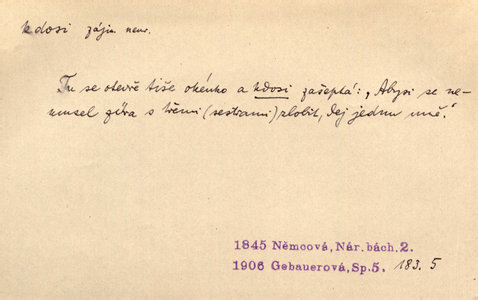 kdosi zájm. neur.
Tu se otevře tiše okénko a kdosi zašeptá: „Abysi se ne-
musel zítra s třemi (sestrami) zlobit, dej jednu mně.“
1845 Němcová, Nár. bách. 2.
1906 Gebauerová, Sp. 5, 183. 5